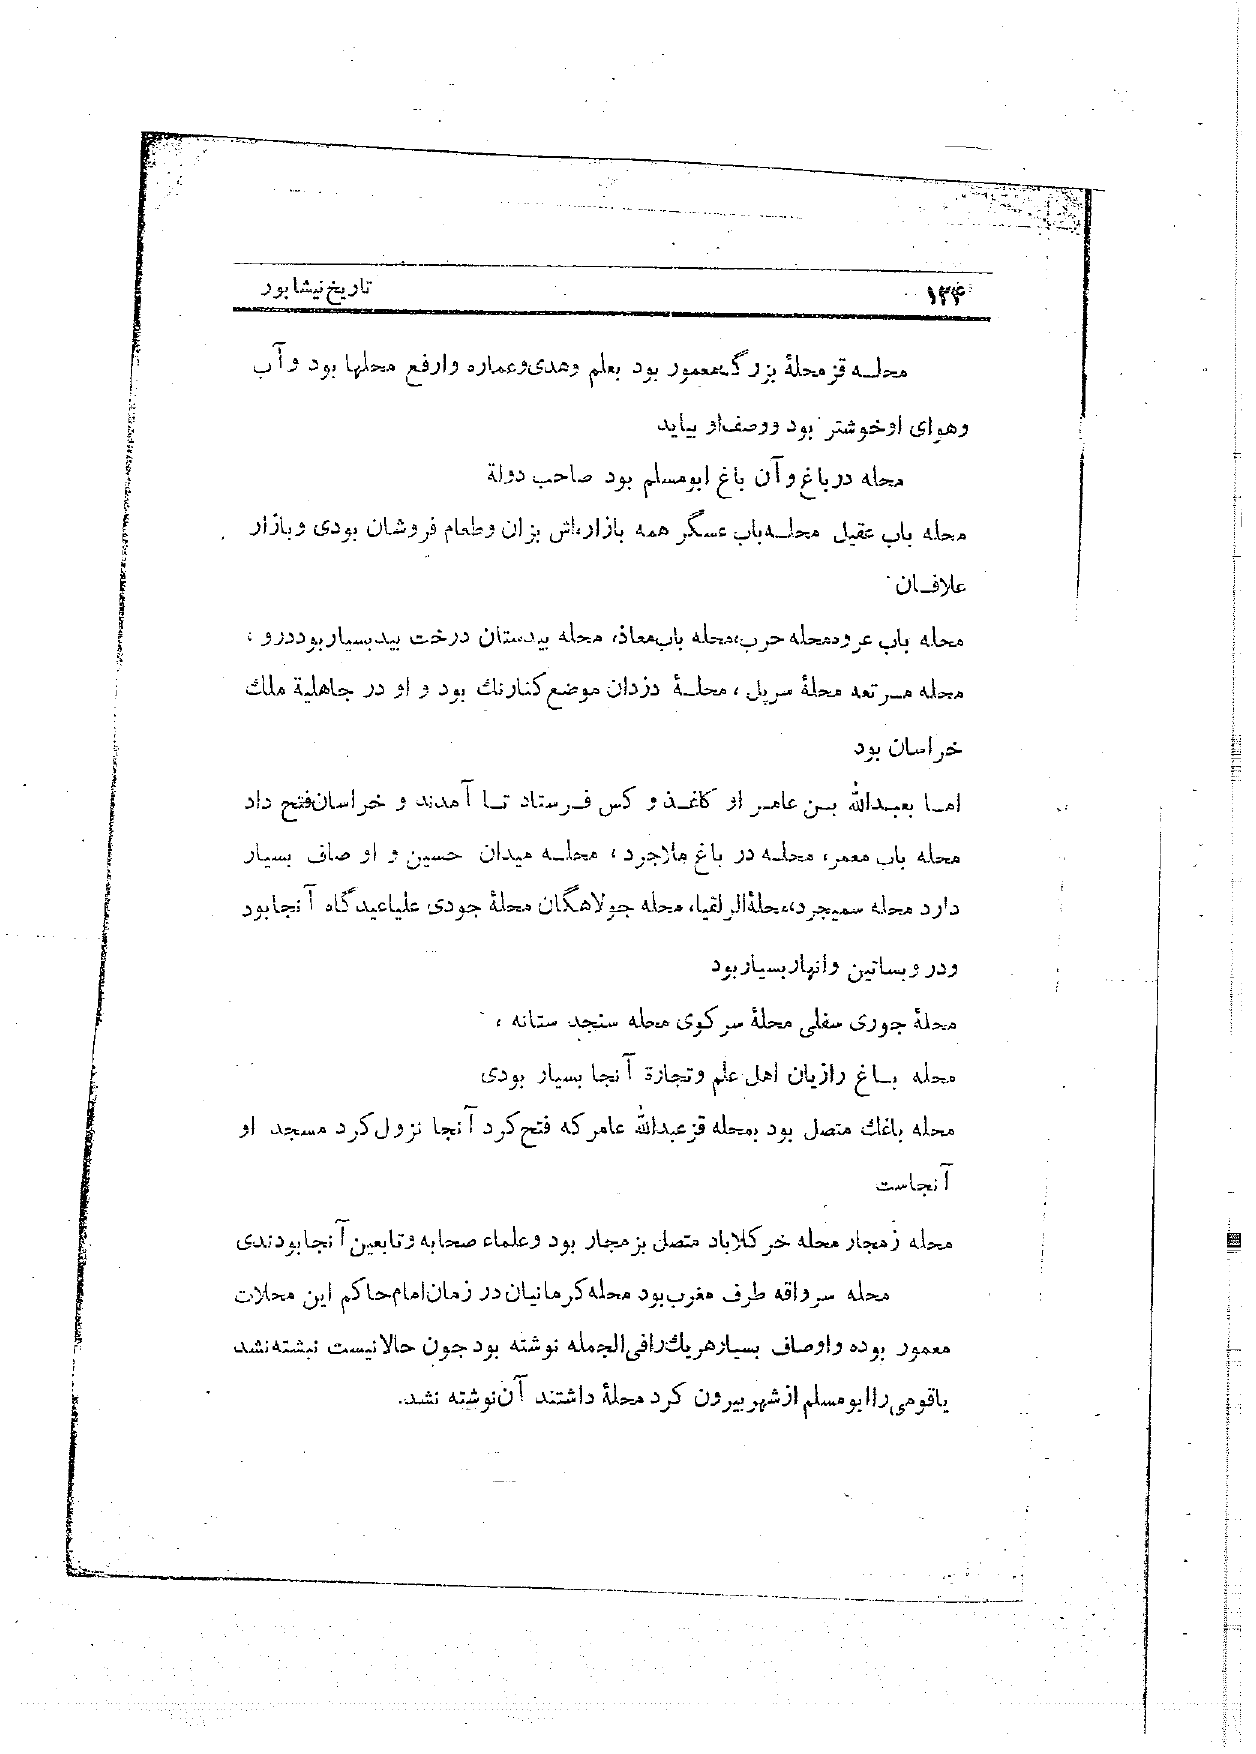 ۱۲۴
تاریخ نیشابور
محلـه قز محلهٔ بزرگ معمور بود بعلم وهدی و عماره وارفع محلها بود و آب
وهوای اوخوشتر بود ووصف او بیاید
محله درباغ و آن باغ ابومسلم بود صاحب دولة
محله باب عقیل محلـه باب عسگر همه بازار ماش بزان وطعام فروشان بودی وبازار
علافـان
محله باب عروه محله حرب، محله باب معاذ، محله بیدستان درخت بیدبسیار بوددرو ،
محله مـر تعه محلهٔ سرپل ، محلـهٔ دزدان موضع کنارنك بود و او در جاهلیة ملك
خراسان بود
امـا بعبـدالله بـن عامـر او کاغـذ و کس فـرستاد تـا آمدند و خراسان فتح داد
محله باب معمر، محلـه در باغ ملاجرد ، محلـه میدان حسین و او صاف بسیار
دارد محله سمیجرد، محلة الرلقیا، محله جولاهگان محلهٔ جودی علیاعیدگاه آنجابود
ودر و بساتین وانهار بسیار بود
محلهٔ جوری سفلی محلهٔ سر کوی محله سنجد ستانه ،
محله بـاغ رازیان اهل علم وتجارة آنجا بسیار بودی
محله باغك متصل بود بمحله قز عبدالله عامر که فتح کرد آنجا نزول کرد مسجد او
آنجاست
محله زمجار محله خر کلاباد متصل بزمجار بود وعلماء صحابه وتابعین آنجابودندی
محله سرواقه طرف مغرب بود محله کرمانیان در زمان امام حاکم این محلات
معمور بوده واوصاف بسیار هریك را فی الجمله نوشته بود جون حالا نیست نبشته نشد
یا قومی را ابومسلم از شهر بیرون کرد محلهٔ داشتند آن نوشته نشد.